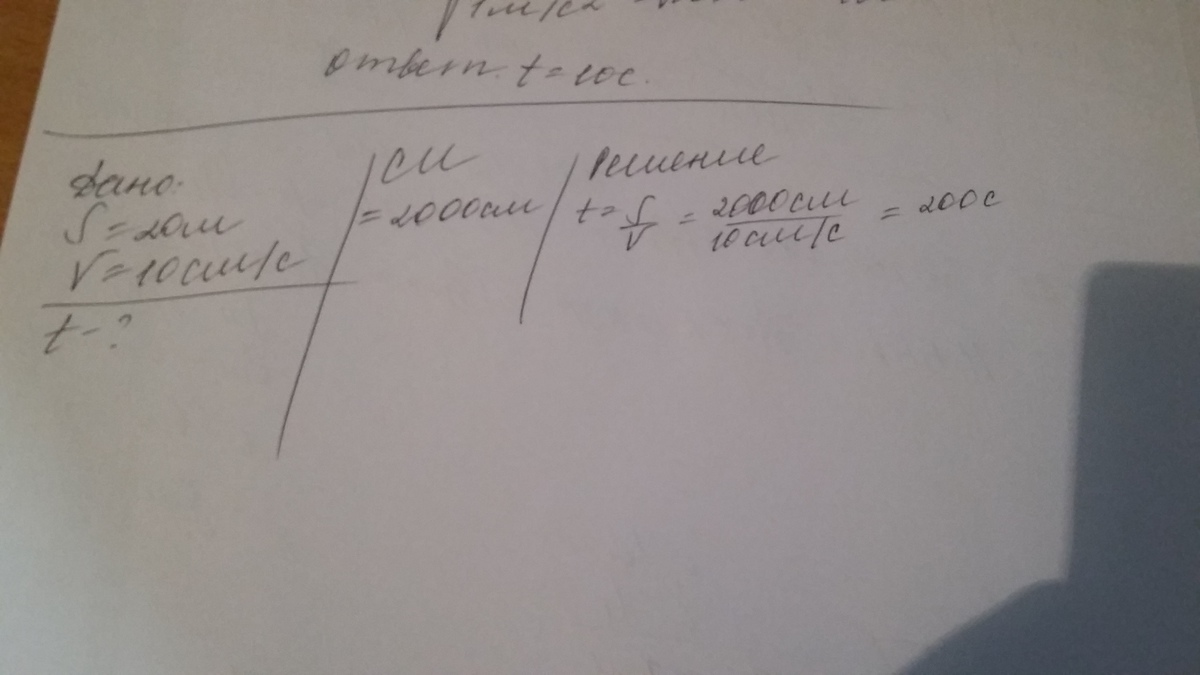 ответ. t = 10с.
Дано:
S = 20м
V = 10см/с
t - ?
СИ
= 2000см
Решение
t = S/V = 2000см/10см/с = 200с